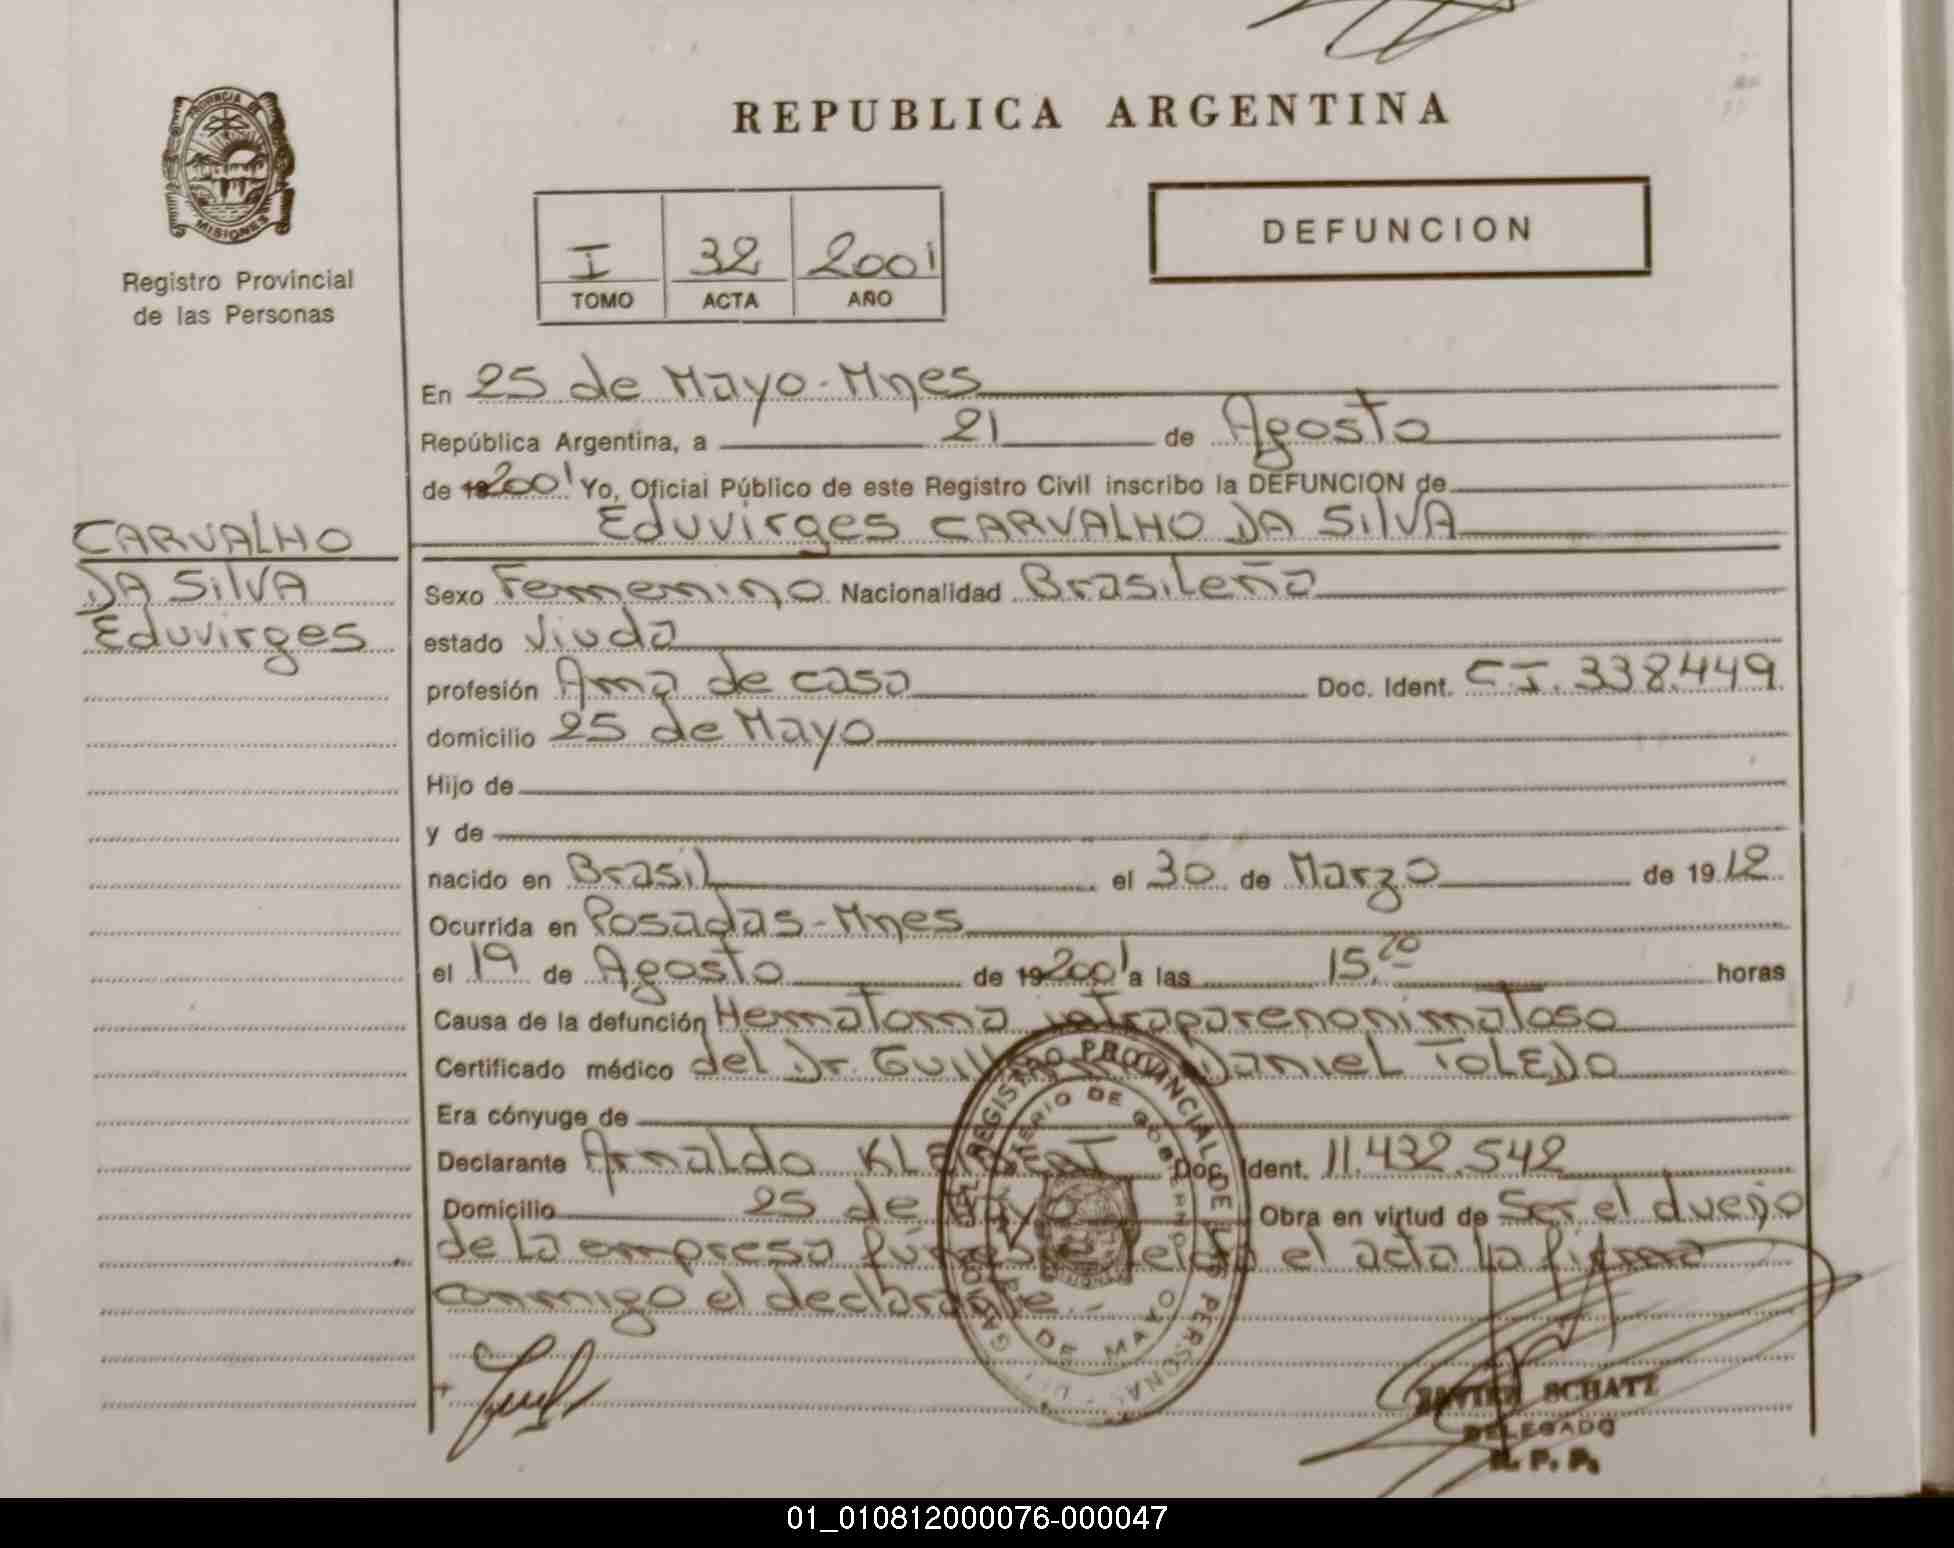 REPUBLICA ARGENTINA
PROVINCIA DE
MISIONES
Registro Provincial
de las Personas
I 32 2001
TOMO ACTA AÑO
DEFUNCION
En 25 de Mayo-Mnes
República Argentina, a 21 de Agosto
de 19 2001 Yo, Oficial Público de este Registro Civil inscribo la DEFUNCION de
Eduvirges CARVALHO DA SILVA
CARVALHO
DA SILVA
Eduvirges
Sexo Femenino Nacionalidad Brasileña
estado Viuda
profesión Ama de casa Doc. Ident. C.I. 338.449
domicilio 25 de Mayo
Hijo de
y de
nacido en Brasil el 30 de Marzo de 1912
Ocurrida en Posadas-Mnes
el 19 de Agosto de 19 2001 a las 15.20 horas
Causa de la defunción Hematoma
Certificado médico del Dr. Daniel TOLEDO
Era cónyuge de
Declarante Arnaldo Doc. Ident. 11.432.542
Domicilio 25 de Mayo Obra en virtud de Ser el dueño
de la empresa fúnebre leída el acta la firma
conmigo el declarante.-
REGISTRO PROVINCIAL DE LAS PERSONAS
DE GOBIERNO
DE MAYO
JAVIER SCHATZ
DELEGADO
R. P. P.
01_010812000076-000047